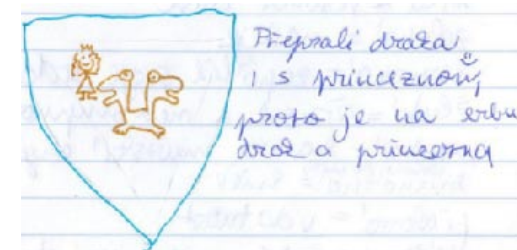 Přeprali draka
i s princeznou,
proto je na erbu
drak a princezna